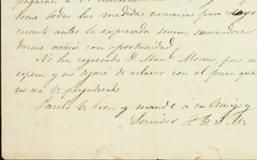 tome todas las medidas necesarias para
cuanto antes la expresada suma,
darme aviso con oportunidad.
No ha regresado D. Man.l Moreno pero se
espera y no dejaré de aclarar con el para que
no sea V. perjudicado.
Páselo V. bien y mande a su Amigo y
Servidor Q. B. S. M.